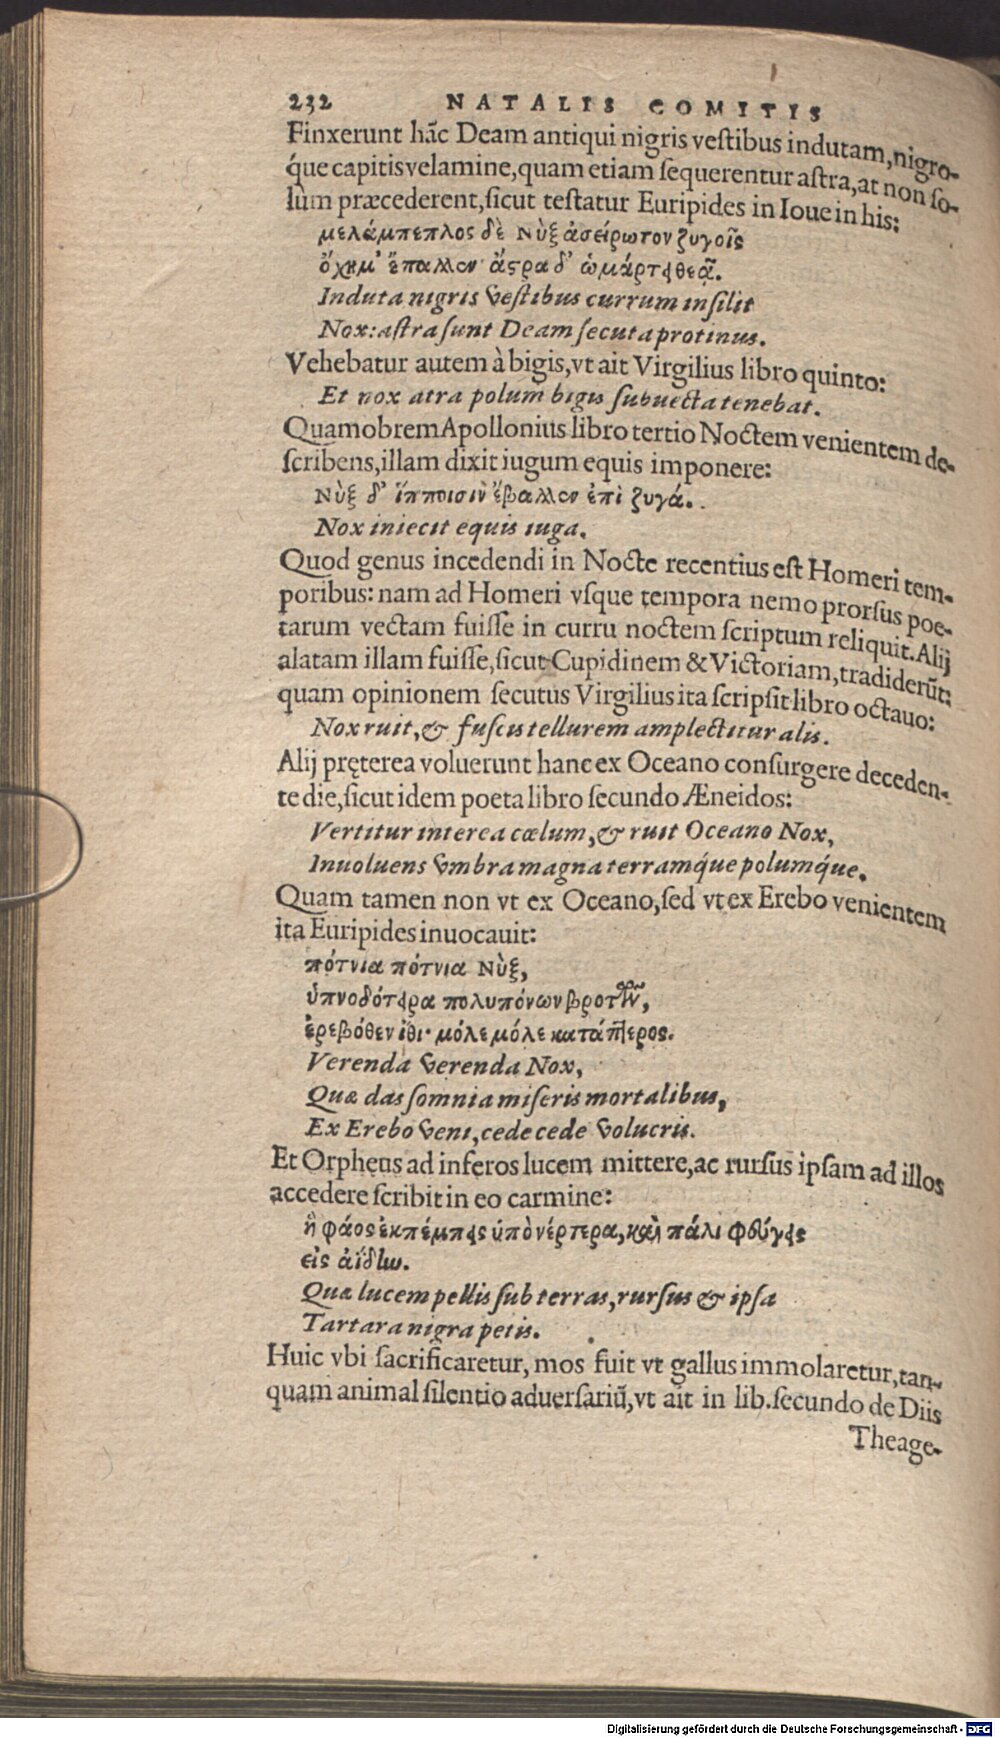 232 NATALIS COMITIS
Finxerunt hãc Deam antiqui nigris vestibus indutam, nigro-
q́ue capitis velamine, quam etiam sequerentur astra, at non so-
lùm præcederent, sicut testatur Euripides in Ioue in his:
μελάμπεπλος δὲ Νὺξ ἀσείρωτον ζυγοῖς
ὄχημ' ἔπαλλεν· ἄστρα δ' ὡμάρτει θεᾷ.
Induta nigris vestibus currum insilit
Nox: astra sunt Deam secuta protinus.
Vehebatur autem à bigis, vt ait Virgilius libro quinto:
Et nox atra polum bigis subuecta tenebat.
Quamobrem Apollonius libro tertio Noctem venientem de-
scribens, illam dixit iugum equis imponere:
Νὺξ δ' ἵπποισιν ἔβαλλεν ἐπὶ ζυγά.
Nox iniecit equis iuga.
Quod genus incedendi in Nocte recentius est Homeri tem-
poribus: nam ad Homeri vsque tempora nemo prorsus poe-
tarum vectam fuisse in curru noctem scriptum reliquit. Alij
alatam illam fuisse, sicut Cupidinem & Victoriam, tradiderũt:
quam opinionem secutus Virgilius ita scripsit libro octauo:
Nox ruit, & fuscis tellurem amplectitur alis.
Alij pręterea voluerunt hanc ex Oceano consurgere deceden-
te die, sicut idem poeta libro secundo Æneidos:
Vertitur interea cœlum, & ruit Oceano Nox,
Inuoluens vmbra magna terramq́ue polumq́ue.
Quam tamen non vt ex Oceano, sed vt ex Erebo venientem
ita Euripides inuocauit:
πότνια πότνια Νὺξ,
ὑπνοδότειρα πολυπόνων βροτῶν,
ἐρεβόθεν ἴθι· μόλε μόλε κατάπτερος.
Verenda verenda Nox,
Quæ das somnia miseris mortalibus,
Ex Erebo veni, cede cede volucris.
Et Orpheus ad inferos lucem mittere, ac rursus ipsam ad illos
accedere scribit in eo carmine:
ἣ φάος ἐκπέμπεις ὑπὸ νέρτερα, καὶ πάλι φεύγεις
εἰς ἀΐδην.
Quæ lucem pellis sub terras, rursus & ipsa
Tartara nigra petis.
Huic vbi sacrificaretur, mos fuit vt gallus immolaretur, tan-
quam animal silentio aduersariũ, vt ait in lib. secundo de Diis
Theage-
Digitalisierung gefördert durch die Deutsche Forschungsgemeinschaft - DFG